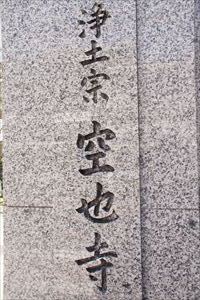 浄土宗 空也寺